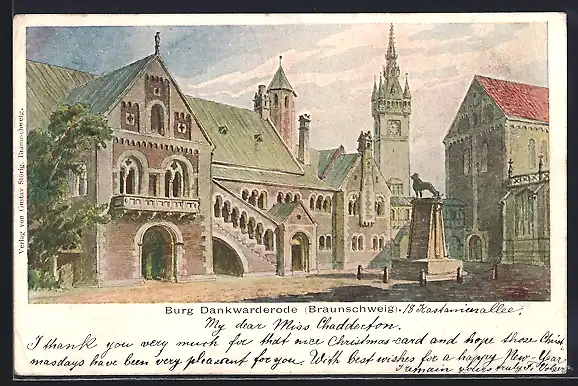 Verlag von Gustav Störig, Braunschweig.
Burg Dankwarderode (Braunschweig). 18 Kastanienallee.
My dear Miss Chadderton.
I thank you very much for that nice Christmas card and hope those Christ
masdays have been very pleasant for you. With best wishes for a happy New-Year
I remain yours truly Fr.